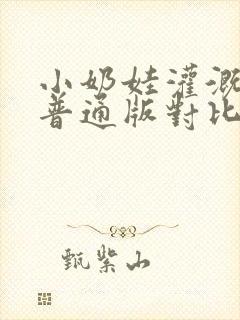 小奶娃灌溉
普通版對比
甄紫山